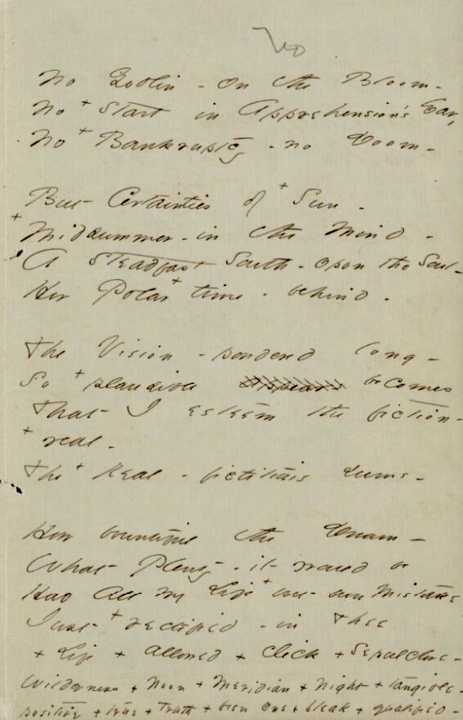 No Goblin - on the Bloom -
No + start in Apprehension's Ear,
No + Bankruptcy - no Doom -
But Certainties of + Sun -
+ Midsummer - in the Mind -
A steadfast South - opon the Soul -
Her Polar + time - behind -
The Vision - pondered long -
So + plausible appears becomes
That I esteem the fiction -
+ real -
The + Real - fictitious seems -
How bountiful the Dream -
What Plenty - it would be
Had all My Life + but been Mistake
Just + rectified - in Thee
+ Life + allowed + click + Sepulchre -
Wilderness + Noon + Meridian + Night + tangible -
positive + true + Truth + been one + bleak + qualified -